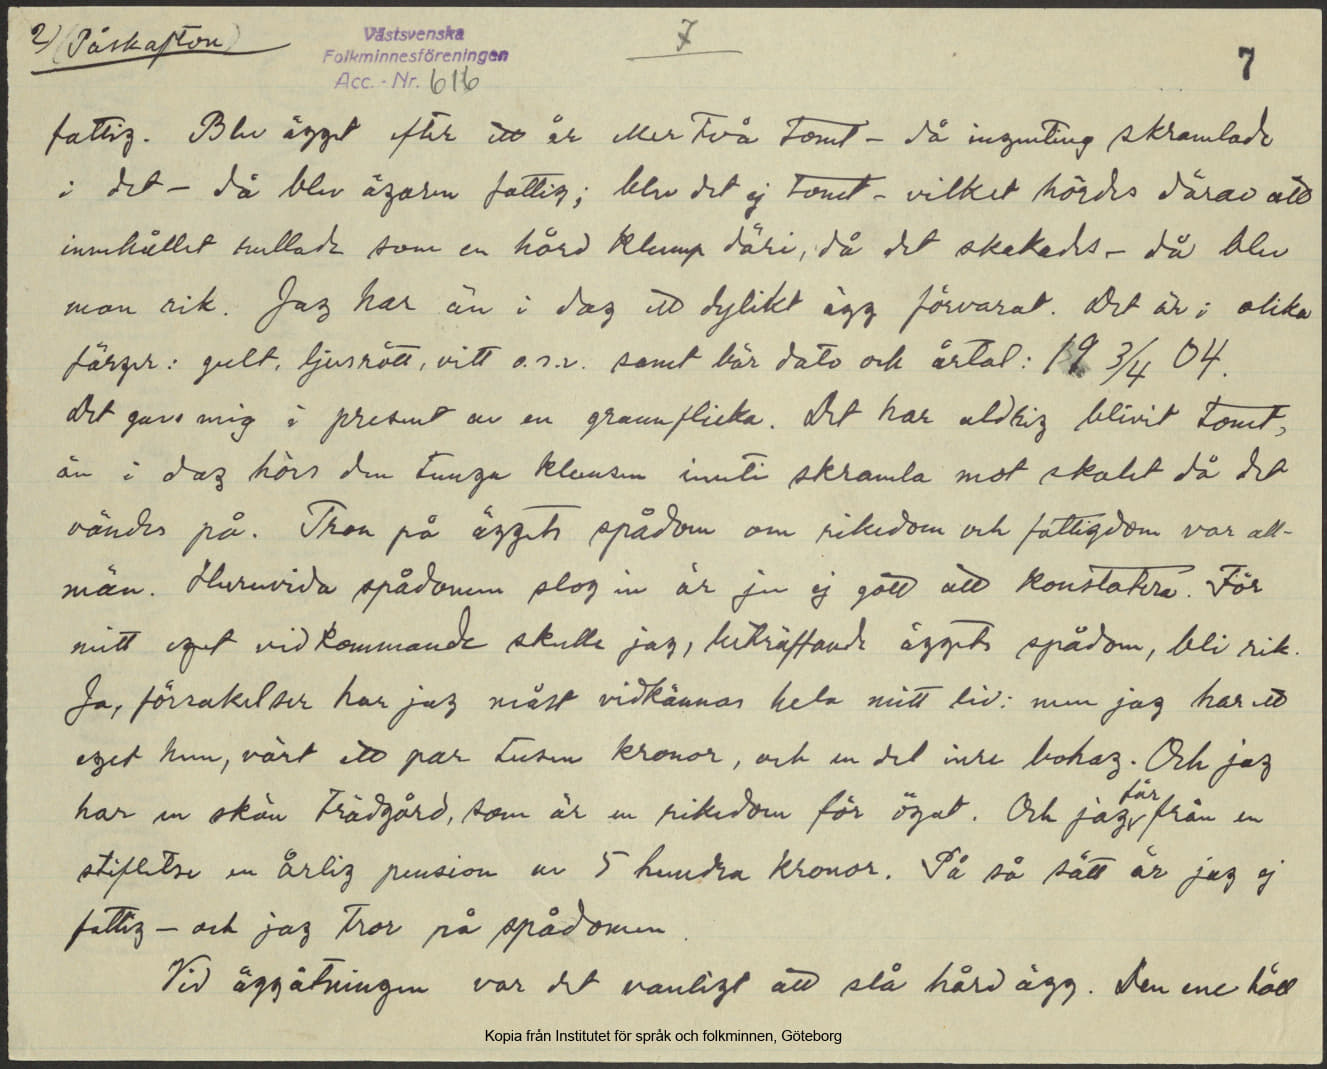 2) (Påskafton)
Västsvenska
Folkminnesföreningen
Acc. - Nr. 616
7
7
fattig. Blev ägget efter ett år eller två tomt - då ingenting skramlade
i det - då blev ägaren fattig; blev det ej tomt - vilket hördes därav att
innehållet rullade som en hård klump däri, då det skakades - då blev
man rik. Jag har än i dag ett dylikt ägg förvarat. Det är i olika
färger: gult, ljusrött, vitt o.s.v. samt bär dato och årtal: 19 3/4 04.
Det gavs mig i present av en grannflicka. Det har aldrig blivit tomt,
än i dag hörs den tunga klumpen inuti skramla mot skalet då det
vändes på. Tron på äggets spådom om rikedom och fattigdom var all-
män. Huruvida spådomen slog in är ju ej gott att konstatera. För
mitt eget vidkommande skulle jag, beträffande äggets spådom, bli rik.
Ja, försakelser har jag måst vidkännas hela mitt liv: men jag har ett
eget hem, värt ett par tusen kronor, och en del inre bohag. Och jag
har en skön trädgård, som är en rikedom för ögat. Och jag får från en
stiftelse en årlig pension av 5 hundra kronor. På så sätt är jag ej
fattig - och jag tror på spådomen.
Vid äggätningen var det vanligt att slå hård ägg. Den ene höll
Kopia från Institutet för språk och folkminnen, Göteborg